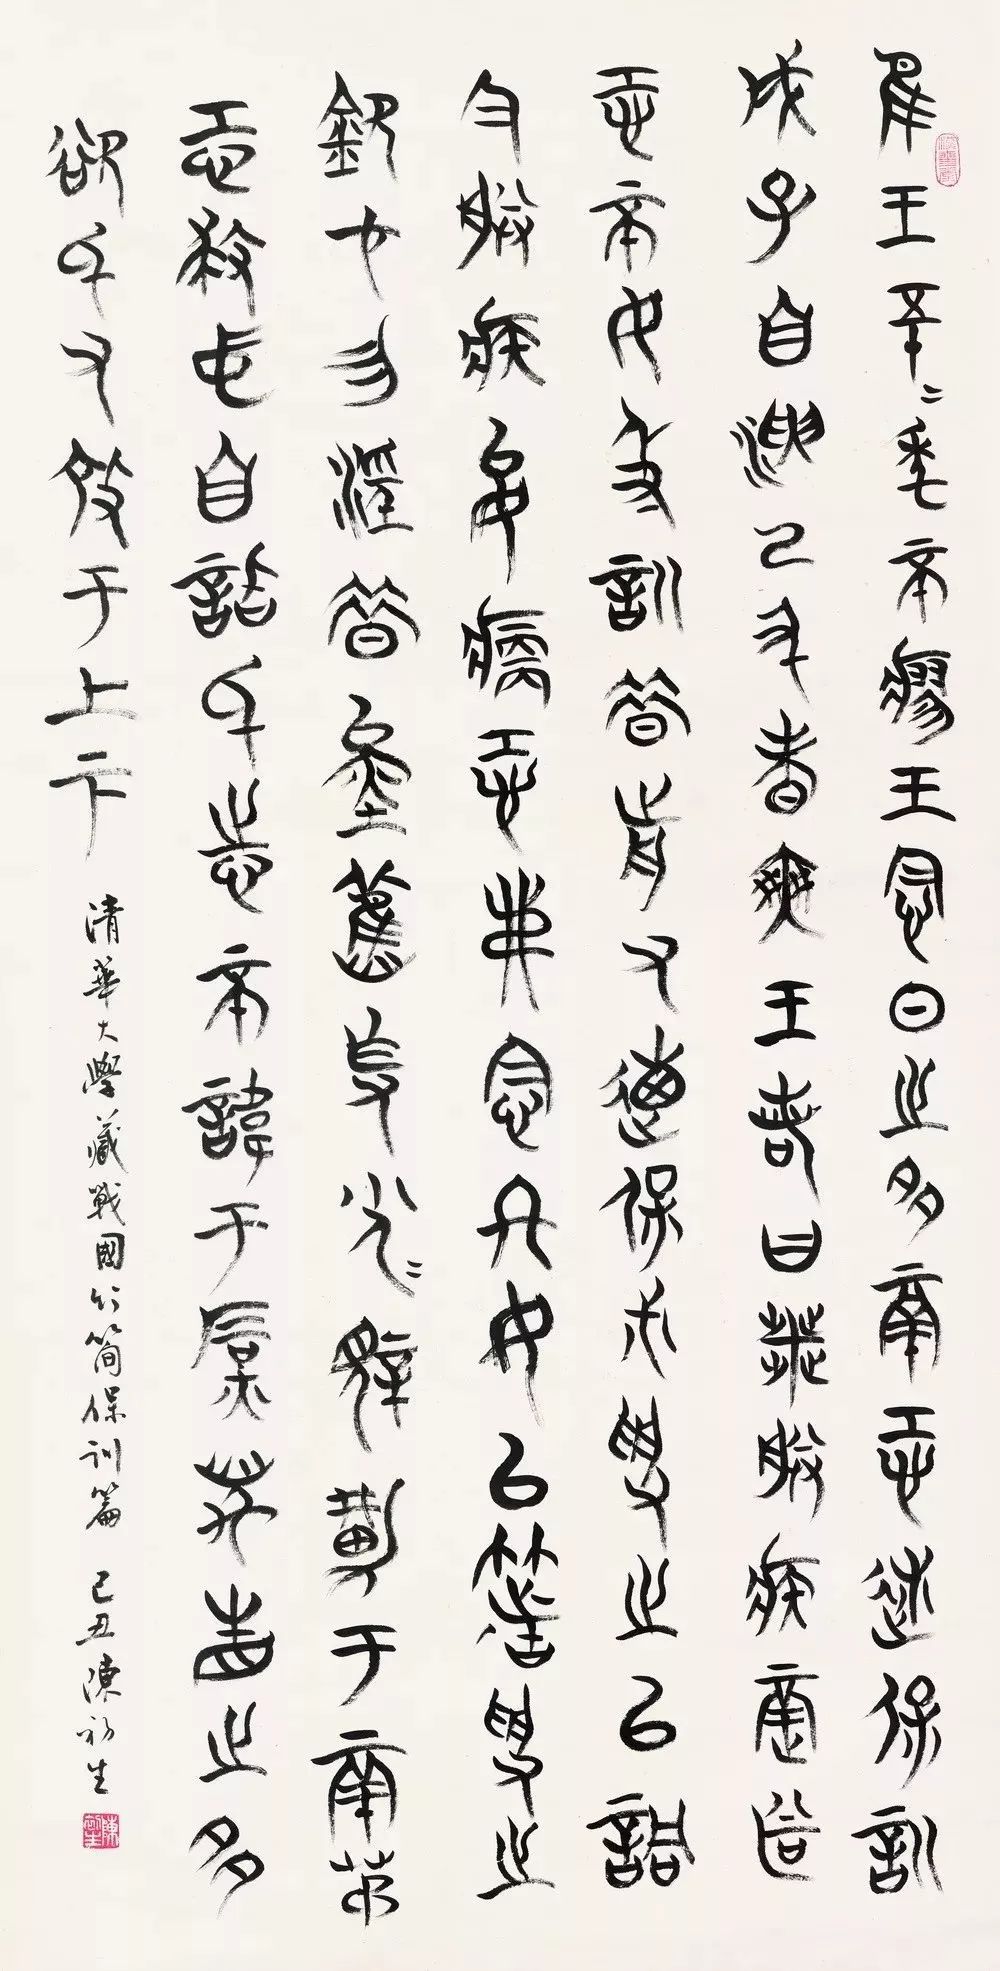 隹王五十=年不瘳王念日之多鬲恐述保訓
戊子自湏己丑昧爽王若曰發朕疾適甚
恐不女及訓昔前又傳保必受之以詷
今朕疾允病恐弗念終女以箸受之
欽才勿淫昔舜舊作小人=親耕于鬲茅
恐救中自詣厥志不諱于庶萬眚之多
欲厥又施于上下
清華大學藏戰國竹簡保訓篇 己丑陳初生